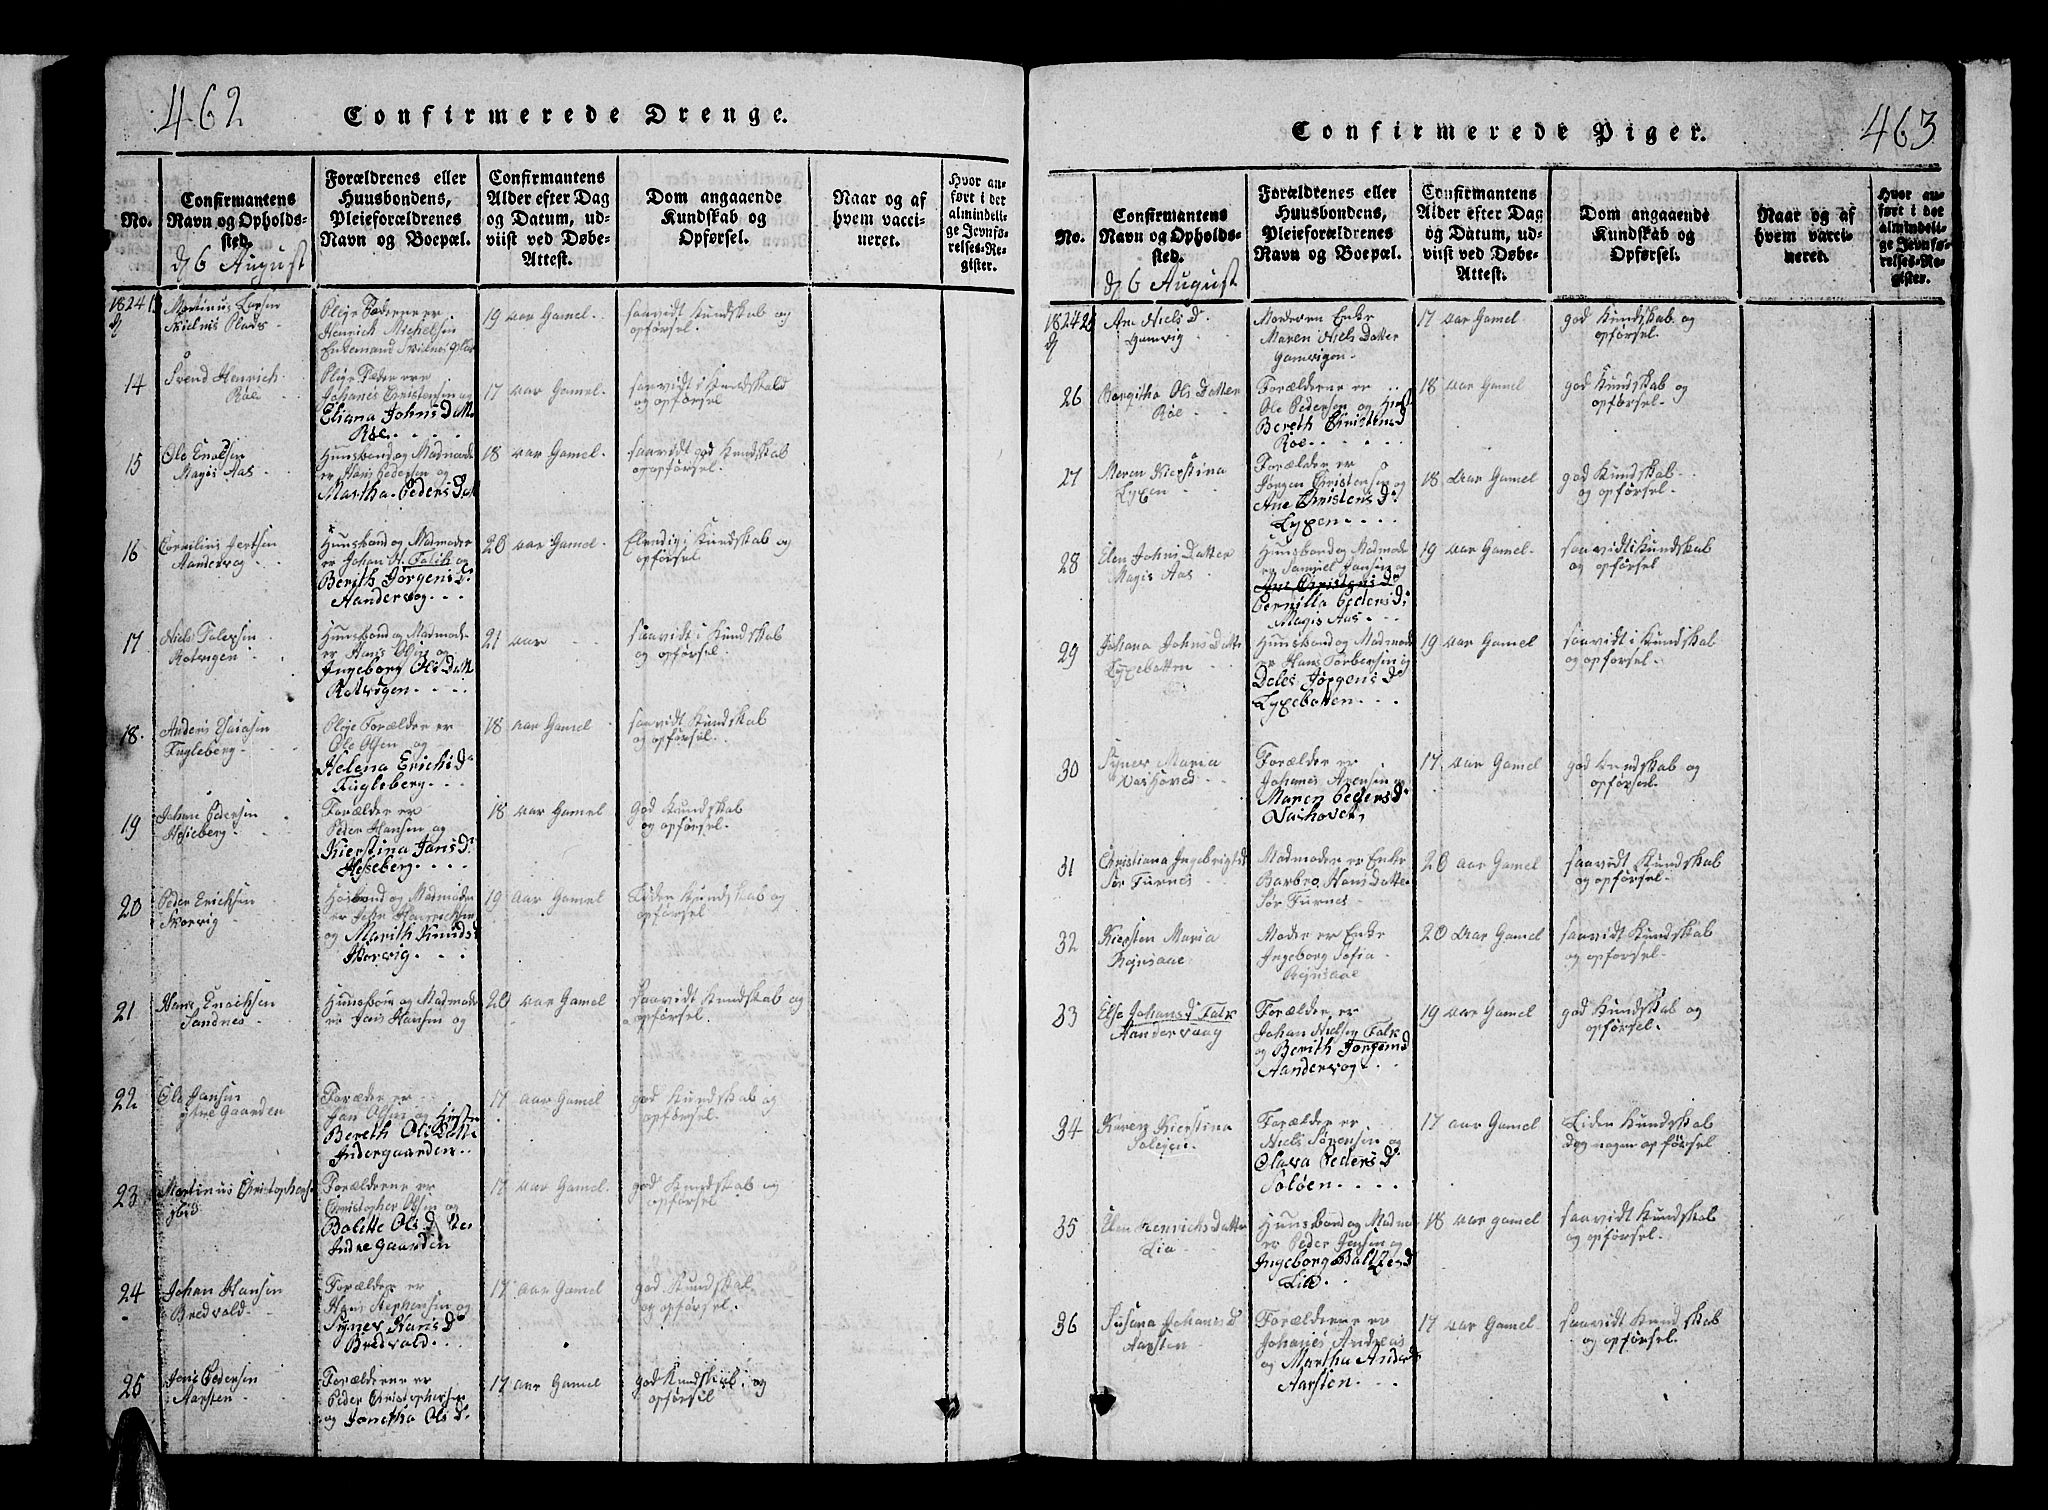 462
Confirmerede Drenge.
No.
Confirmantens
Navn og Opholds-
sted.
Forældrenes eller
Huusbondens,
Pleieforældrenes
Navn og Boepæl.
Confirmantens
Alder efter Dag
og Datum, ud-
viist ved Døbe-
Attest.
Dom angaaende
Kundskab og
Opførsel.
Naar og af
hvem vacci-
neret.
Hvor an-
ført i det
almindeli-
ge Jevnfø-
relses-Re-
gister.
dj 6 August
1824
dj
Martinus
Pleje Fæderne er
Henrich Michelsen
Enkemand
19 aar Gamel.
saavidt Kundskab og
opførsel.
14
Svend Henrich
Roe
Pleje Fæder ere
Johanes Christensen og
Eliana Johns Datter
Roe
17 aar Gamel.
saavidt i Kundskab
og opførsel
15
Ole
Magis Aas
Huusbond og Madmoder
er Hans Pedersen og
Martha Peders Dat
18 aar Gamel.
saavidt god Kundskab
og opførsel.
16
Cornilius
Aandervog
Huusbond og Madmoder
er Johan N. Falch og
Berith Jørgens D:
Aandervog
20 aar Gamel.
Elendig i Kundskab og
opførsel
17
Niels
Rotvigen
Huusbond og Madmoder
er Hans Olsen og
Ingeborg Ols Datt
Rotvigen
21 aar
saavidt i Kundskab
og opførsel.
18.
Anders
Fugleberg
Pleje Forælder er
Ole Olsen og
Helena Erichs D:
Fugleberg
18 aar Gamel
saavidt Kundskab
og opførsel.
19
Johan Pedersen
Hesseberg
Forælder er
Peder Hansen og
Kierstina Jans D:
Hesseberg
18 aar Gamel
god Kundskab
og opførsel.
20
Peder Erichsen
Skorvig
Husbond og Madmoder
er
og Marith Knuds d
Skorvig
19 aar Gamel
Liden Kundskab og
opførsel
21
Hans
Sandnes
Huusbond og Madmoder
er Jens Hansen og
20 aar Gamel
saavidt Kundskab og
opførsel.
22
Ole Jansen
ytre Gaarden
Foræder er
Jan Olsen og Hustr
Bereth Ols Datt
Indergaarden
17 aar Gamel
god Kundskab og
opførsel.
23
Martinus Christophers
Forælderne er
Christopher Olsen og
Bolette Ols Datter
Indre Gaarden
17 aar Gamel.
god Kundskab og
opførsel
24
Johan Hansen
Bredvold
Forælder er
Hans Stephensen og
Synev Hans D:
Bredvold
17 aar Gamel
god Kundskab
og opførsel.
25
Jens Pedersen
Aarsten
Forælderne er
Peder Christophersen
og Janetha Ols D:
17 aar Gamel
god Kundskab og
opførsel
463
Confirmerede Piger.
No.
Confirmantens
Navn og Opholds-
sted.
Forældrenes eller
Huusbondens,
Pleieforældrenes
Navn og Boepæl.
Confirmantens
Alder efter Dag
og Datum, ud-
viist ved Døbe-
Attest.
Dom angaaende
Kundskab og
Opførsel.
Naar og af
hvem vacci-
neret.
Hvor an-
ført i det
almindeli-
ge Jevnfø-
relses-Re-
gister.
dj 6 August
1824 25
dj
Ane Niels D:
Gamvig
Moderen Enke
Maren Niels Datter
Gamvigen
17 aar Gamel
god Kundskab og
opførsel.
26
Margitha Ols Datter
Roe
Forælderne er
Ole Pedersen og Hust
Bereth Christens D
Roe
18 aar Gamel
god Kundskab og
opførsel.
27
Maren Kierstina
Lyxen
Forælder er
Jørgen Christensen og
Ane Christens D:
Lyxen
18 aar Gamel
god Kundskab
og opførsel.
28
Elen Johns Datter
Magis Aas
Huusbond og Madmoder
er Samuel Jansen og
Ane Christens D:
Pernilla Peders D:
Magis Aas
19 aar Gamel.
saavidt i Kundskab
og opførsel
29
Johana Johns Datter
Lyxebotten
Huusbond og Madmoder
er Hans Torbersen og
Deles Jørgens D:
Lyxebotten
19 aar Gamel
saavidt i Kundskab
og opførsel.
30
Synev Maria
Vashoved
Forælder er
Johanes Arensen og
Maren Peders D:
Vashovet
17 aar Gamel
god Kundskab og
opførsel.
31
Christiana Ingebrigts D
Sør Furnes
Madmoder er Enke
Barbro Hans Datter
Sør Furnes
20 aar Gamel
saavidt Kundskab
og opførsel.
32
Kiersten Maria
Rejnsaae
Moder er Enke
Ingeborg Sofia
Rejnsaae
20 aar Gamel
saavidt Kundskab
og opførsel.
33
Else Johans D Falk
Aandervaag
Forælder er
Johan Nielsen Falk
og Berith Jørgens D
Aandervog
19 aar Gamel
god Kundskab og
opførsel.
34
Karen Kierstina
Soløen
Forælder er
Niels Sørensen og
Olava Peders D:
Soløen
17 aar Gamel
Liden Kundskab
dog nogen opførsel
35
Elen Henrichs Datter
Lia
Huusbond og Madmo
er Peder Jensen og
Ingeborg Baltzers D
Lia
18 aar gamel
saavidt Kundskab
og opførsel.
36
Susana Johanes D
Aarsten
Forælderne er
Johanes Andreas
og Martha Anders
Aarsten
17 aar Gamel.
saavidt Kundskab
og opførsel.